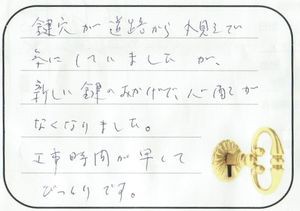 鍵穴が道路から見えて
気にしていましたが、
新しい鍵のおかげで、心配が
なくなりました。
工事時間が早くて
びっくりです。